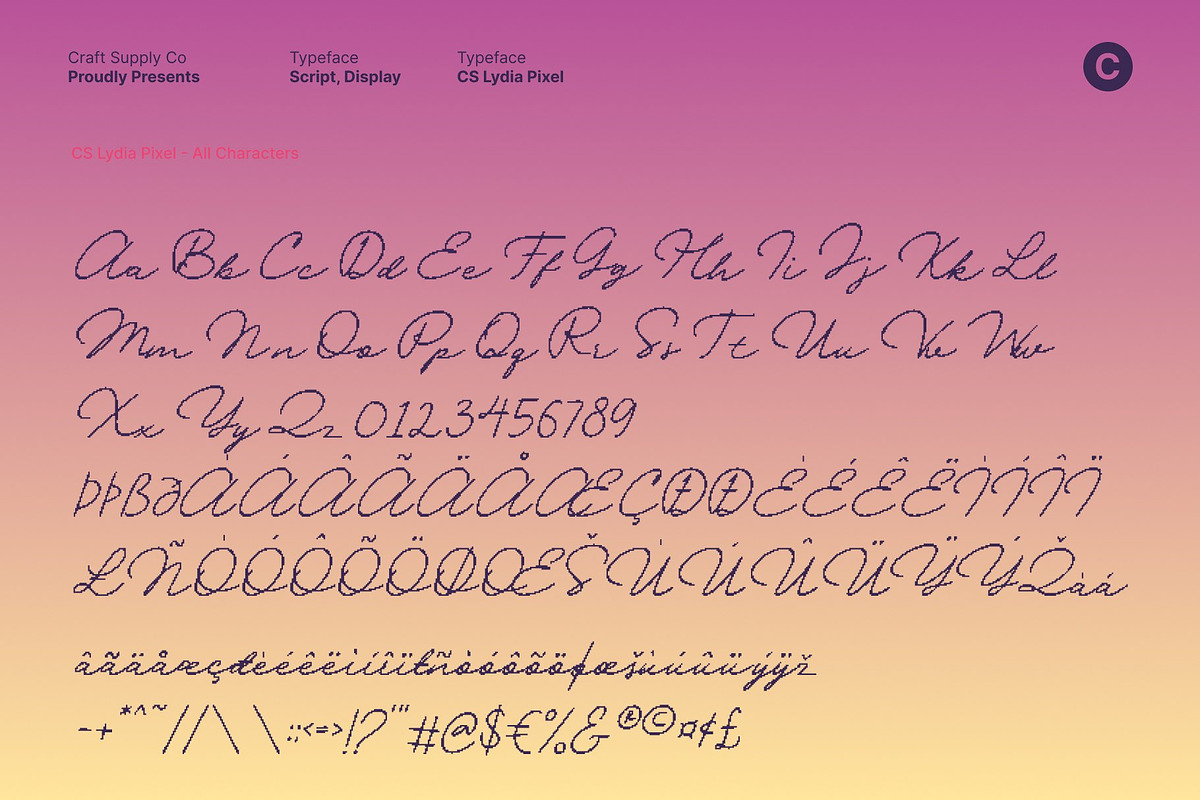 Craft Supply Co
Proudly Presents
Typeface
Script, Display
Typeface
CS Lydia Pixel
C
CS Lydia Pixel - All Characters
Aa Bb Cc Dd Ee Ff Gg Hh Ii Jj Kk Ll
Mm Nn Oo Pp Qq Rr Ss Tt Uu Vv Ww
Xx Yy Zz 0123456789
ÞþßðÀÁÂÃÄÅÆÇĐÐÈÉÊËÌÍÎÏ
ŁÑÒÓÔÕÖØŒŠÙÚÛÜŸÝŽàá
âãäåæçđèéêëìíîïłñòóôõöøœšùúûüýÿž
-+*^~//\ \:;<=>!?'"#@$€%&®©¤¢£